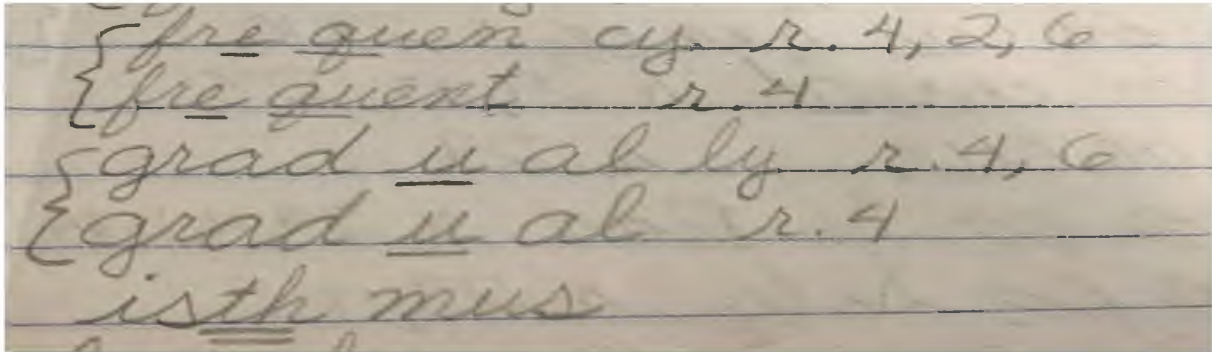 {fre quen cy r. 4, 2, 6
{fre quent r. 4
{grad u al ly r. 4, 6
{grad u al r. 4
isth mus